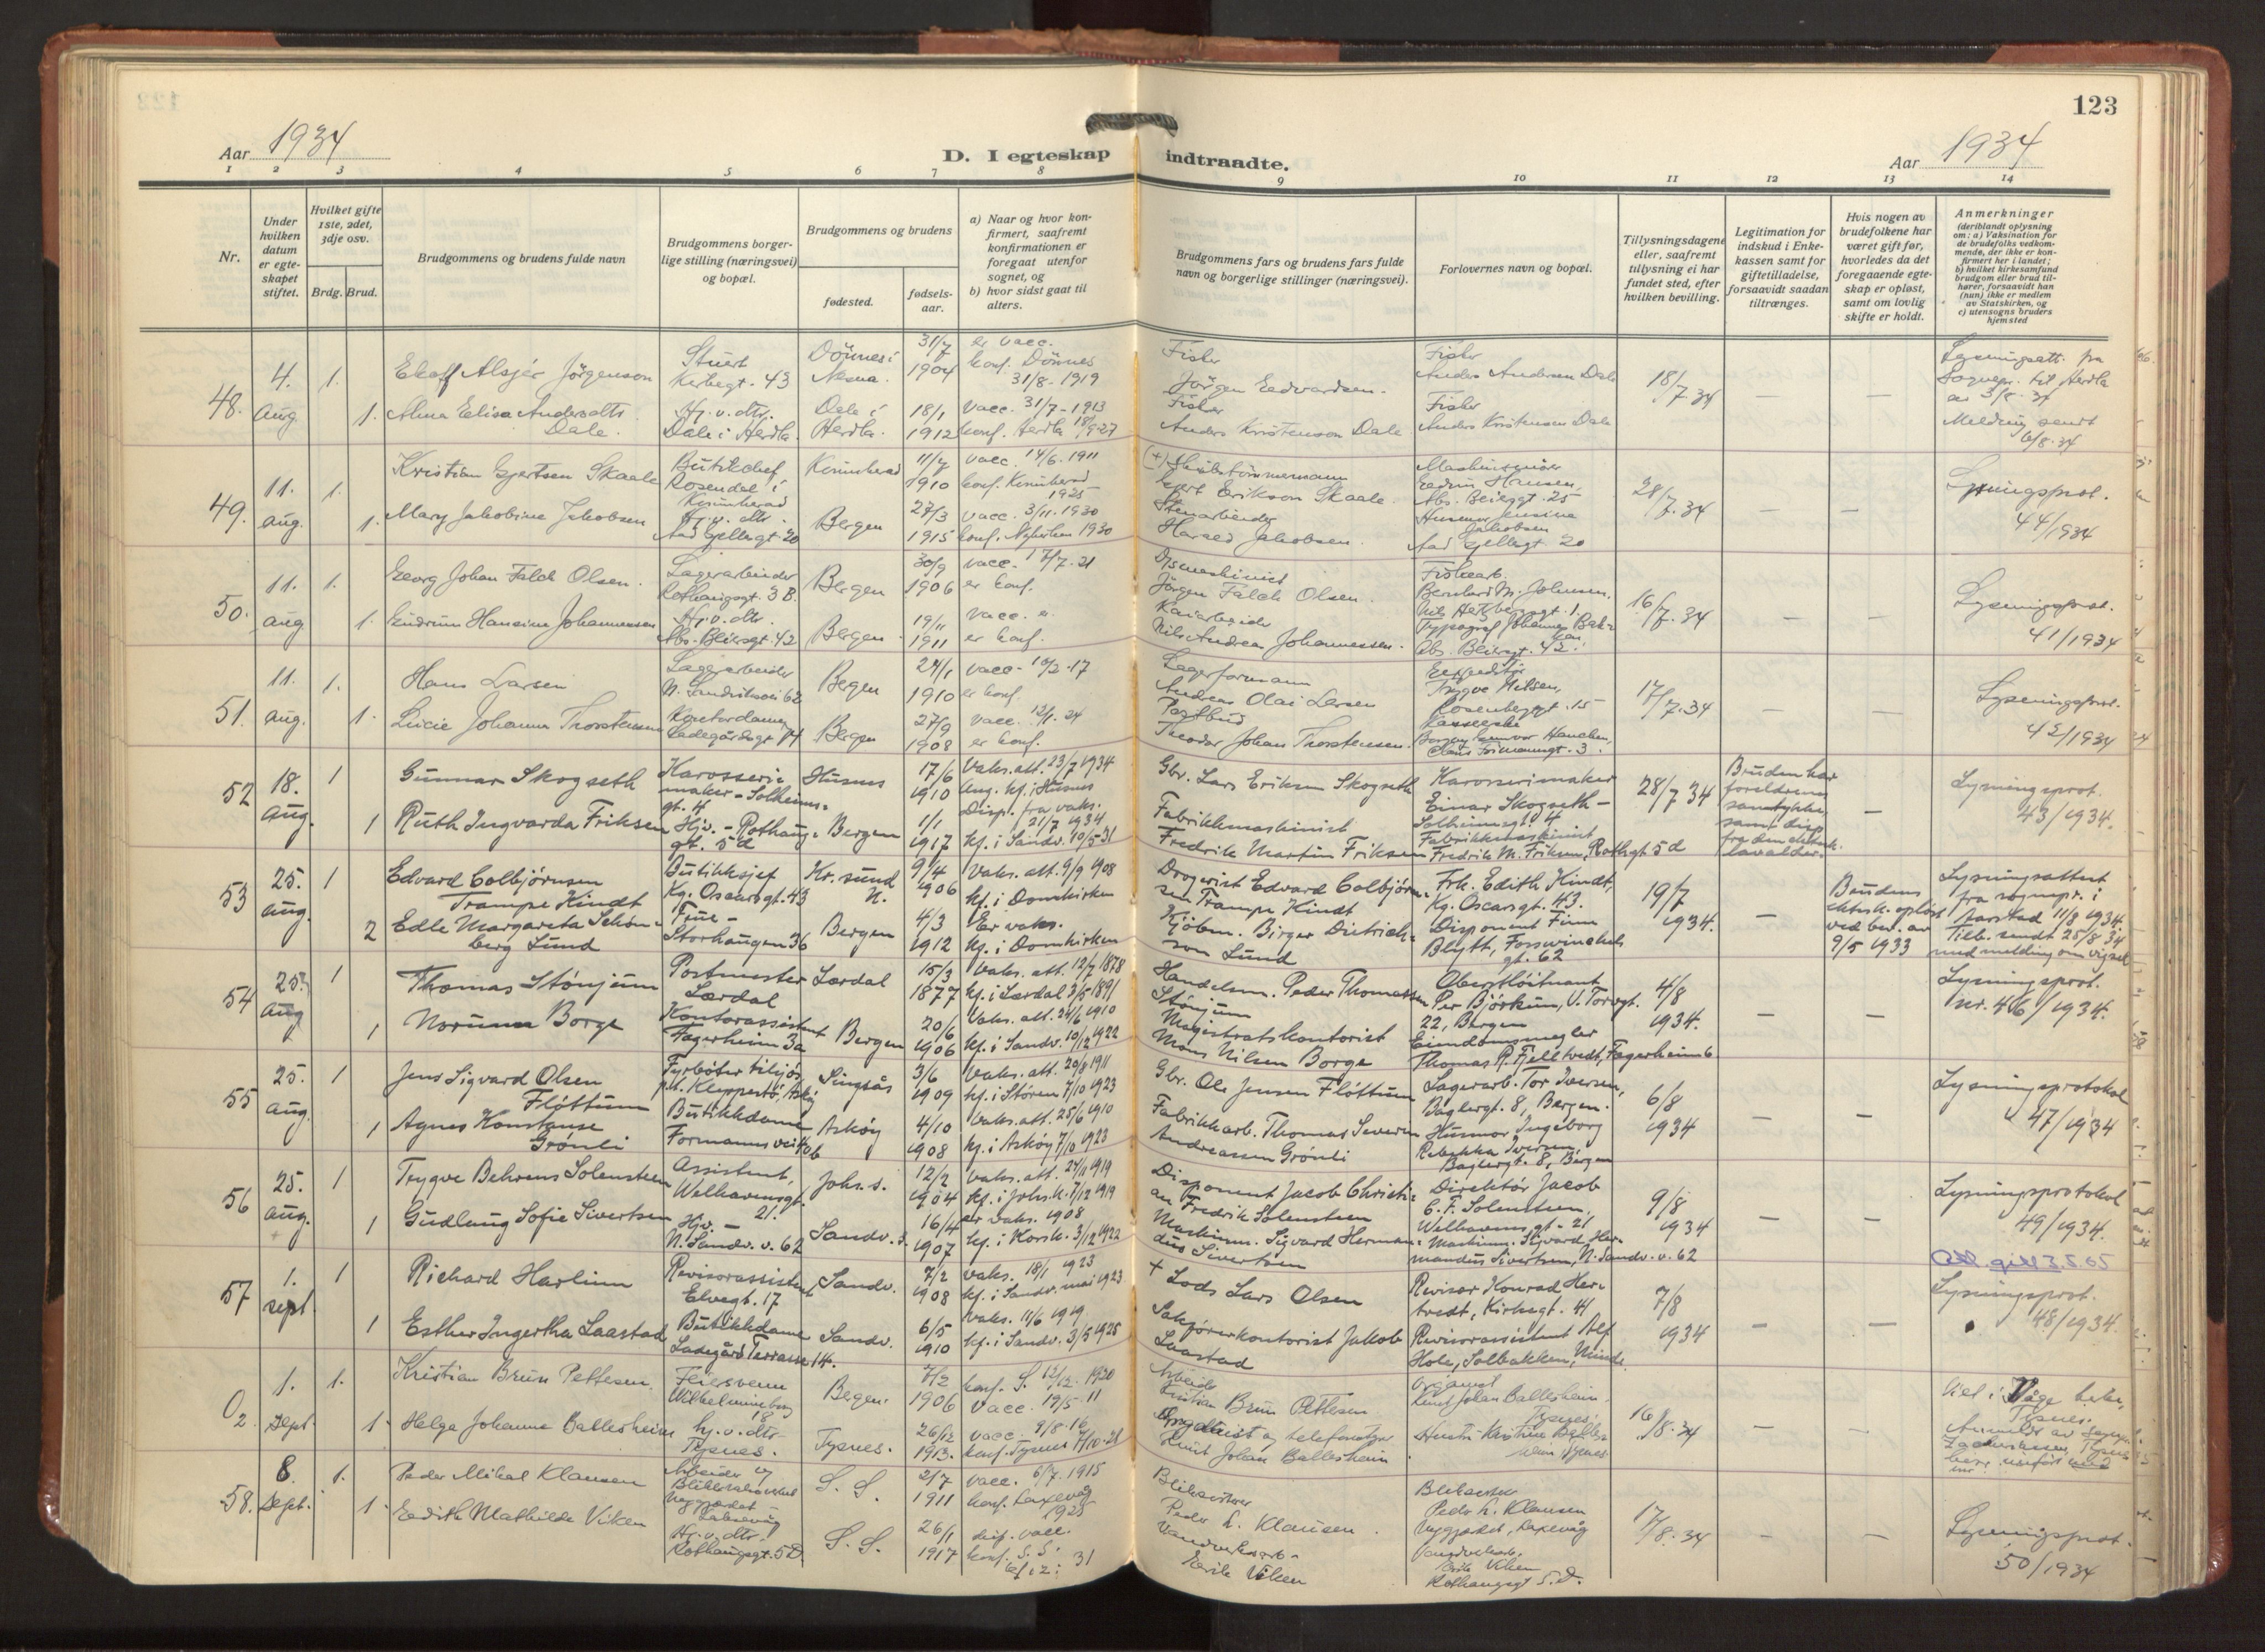 123
Aar 1934
D. I egteskap indtraadte.
Aar 1934
1 2 3 4 5 6 7 8 9 10 11 12 13 14
Nr.
Under hvilken datum er egteskapet stiftet.
Hvilket gifte 1ste, 2det, 3dje osv.
Brdg. Brud.
Brudgommens og brudens fulde navn
Brudgommens borgerlige stilling (næringsvei) og bopæl.
Brudgommens og brudens
fødested.
fødselsaar.
a) Naar og hvor konfirmert, saafremt konfirmationen er foregaat utenfor sognet, og
b) hvor sidst gaat til alters.
Brudgommens fars og brudens fars fulde navn og borgerlige stillinger (næringsvei).
Forlovernes navn og bopæl.
Tillysningsdagene eller, saafremt tillysning ei har fundet sted, efter hvilken bevilling.
Legitimation for indskud i Enkekassen samt for giftetilladelse, forsaavidt saadan tiltrænges.
Hvis nogen av brudefolkene har været gift før, hvorledes da det foregaaende egteskap er opløst, samt om lovlig skifte er holdt.
Anmerkninger
(deriblandt oplysning om: a) Vaksination for de brudefolks vedkommende, der ikke er konfirmert her i landet;
b) hvilket kirkesamfund brudgom eller brud tilhører, forsaavidt han (hun) ikke er medlem av Statskirken, og
c) utensogns bruders hjemsted
48. 4. Aug
1. Jørgensen Stuert 43 Dønnes i 31/7 1904 er vacc. konf. Dønnes 31/8-1919
Fisker Jørgen Edvardsen
Fisker Anders Andersen Dale
18/7.34
1. Alma Elisa Andersdtr. Dale. Hj.v. dtr. Dale i Herdla. Dale i Herdla. 18/1 1912 vacc. 31/7-1913 konf. Herdla
Fisker Anders Kristensen Dale
Fisker Anders Kristensen Dale
Meldning sendt 6/8.34
49. 11. aug.
1. Kristian Gjertsen Skaale Butikchef Rosendal i Kvinnherad Kvinnherad 11/7 1910 vacc. 14/6.1911 konf. Kvinnherad 1925
Erikson Skaale
Hansen, Abs. Beiersgt. 25
28/7.34
Lysningsprot. 44/1934
1. Mary Jakobine Jakobsen Hj.v. dtr. Aad Gjellesgt 20 Bergen 27/3 1915 vacc. 3/11.1930 konf. Nykirken 1930
Stenarbeider Harald Jakobsen
Jakobsen Aad Gjellesgt. 20
50. 11. aug
1. Georg Johan Falch Olsen. Lagerarbeider Rothaugsgt. 3 B. Bergen 30/9 1906 vacc. 17/7.21 er konf.
Jørgen Falch Olsen.
Bernhard M. Johnsen,
16/7.34
Lysningsprot. 41/1934
1. Gudrun Hansine Johannessen Hj.v. dtr. Abs. Beiersgt. 42 Bergen 19/11 1911 vacc. e. er konf.
Kaiarbeider Nils Andreas Johannessen.
Typograf Johannes Abs. Beiersgt. 42.
51. 11. aug.
1. Hans Larsen Lagerarbeider N. Sandviksvei 62 Bergen 24/1 1910 vacc. 10/2-17 er konf.
Lagerformann Andreas Olai Larsen
Trygve Nilsen, Rosenbergsgt. 15
17/7.34
Lysningsprot. 42/1934
1. Lucie Johanna Thorstensen Kontordame Ladegårdsgt 14 Bergen 27/9 1908 vacc. 12/1.24 er konf.
Postbud Theodor Johan Thorstensen.
52 18. Aug.
1 Gunnar Skogseth Karosserimaker - Solheimsgt. 4 Husnes 17/6 1910 Vaks. att. 23/7 1934 kf. i Husnes
Gbr. Lars Eriksen Skogseth
Karosserimaker Einar Skogseth - Solheimsgt. 4
28/7 34
Bruden har foreldrenes samtykke,
Lysningsprot. 43/1934.
1 Ruth Ingvarda Friksen Hjv. - Rothaugsgt. 5d Bergen 1/1 1917 Disp. fra vaks. 21/7 1934 kf. i Sandv. 10/5-31
Fabrikkmaskinist Fredrik Martin Friksen
Fabrikkmaskinist Fredrik M. Friksen, Rothgt 5d
53 25. aug.
1 Edvard Colbjørnsen Trampe Kindt Butikksjef Kg. Oscarsgt. 43 Kr. sund N. 9/4 1906 Vaks. att. 9/9 1908 kf. i Domkirken
Drogerist Edvard Colbjørnsen Trampe Kindt
Frk. Edith Kindt, Kg. Oscarsgt. 43.
19/7 1934.
Brudens ektesk. opløst ved bev. av 9/5 1933
Lysningsattest fra sogenpr. i Aarstad 11/8 1934. Tilb. sendt 25/8 34 med melding om vigsel
2 Edle Margareta Schønberg Lund Frue - Storhaugen 36 Bergen 4/3 1912 Er vaks. kf. i Domkirken
Kjøbm. Birger Dietrichson Lund
Disponent Finn Blytt, Fosswinckels gt. 62
54 25. Aug
1 Thomas Stønjum Postmester Lærdal Lærdal 15/3 1877 Vaks. att. 12/7 1878 kf. i Lærdal 3/5 1891
Handelsm. Peder Thomassen Stønjum
Oberstløitnant Per Bjørkum, V. Torvgt. 22, Bergen
4/8 1934.
Lysningsprot. nr. 46/1934.
1 Norunn Borge Kontorassistent Fagerheim 3a Bergen 20/6 1906 Vaks. att. 24/6 1910 kf. i Sandv. 10/12 1922
Magistratskontorist Mons Nilsen Borge
Eiendomsmegler Thomas R. Fjelltvedt, Fagerheim 6
55 25. Aug.
1 Jens Sigvard Olsen Fløttum Fyrbøter tilsjøs pt. Kleppestø, Askøy Singsås 3/6 1909 Vaks. att. 20/8 1911 kf. i Støren 7/10 1923
Gbr. Ole Jensen Fløttum
Lagerarb. Tor Iversen, Baglergt. 8, Bergen.
6/8 1934
Lysningsprotokol 47/1934
1 Agnes Konstanse Grønli Butikkdame Formannsvei 10b Askøy 4/10 1908 Vaks. att. 25/6 1910 kf. i Askøy 7/10 1923
Fabrikkarb. Thomas Severin Andreassen Grønli
Husmor Ingeborg Rebekka Iversen Baglergt. 8, Bergen
56 25. Aug.
1 Trygve Behrens Solensteen Assistent, Welhavensgt. 21. Johs. s. 12/2 1904 Vaks. att. 24/11 1919 kf. i Johs. k. 7/12 1919
Disponent Jacob Christian Fredrik Solensteen
Direktør Jacob C. F. Solensteen, Welhavensgt - 21
9/8 1934
Lysningsprotokol 49/1934.
1 Gudlaug Sofie Sivertsen Hjv. - N. Sandv. v. 62 Sandv. s. 16/4 1907 er vaks. 1908 kf. i Korsk. 3/12 1922
Maskinm. Sigvard Hermandus Sivertsen
Maskinm. Sigvard Hermandus Sivertsen, N. Sandv. v. 62
Att. gitt 3.5.65
57 1. sept.
1 Richard Harlinn Revisorassistent Elvegt. 17 Sandv. 7/2 1908 vaks. 18/1 1923 kf. i Sandv. mai 1923
+ Lods Lars Olsen
Revisor Konrad Kirkegt. 41
7/8 1934
Lysningsprot. 48/1934.
1 Esther Ingertha Laastad Butikkdame Ladegård Terrasse 14. Sandv. 6/5 1910 Vaks. 11/6 1919. kf. i Sandv. 3/5 1925
Sakførerkontorist Jakob Laastad
Revisorassistent Alf Hole, Solbakken, Minde.
O2. 1. Sept.
1. Kristian Brun Pettesen. Feiersvenn Bergen. 7/2 1906 konf. S. 12/12.1920 vacc. 19/5-11
Arbeider Kristian Brun Pettesen
Knut Johan Ballesheim. Tysnes.
16/8.34
1. Helga Johanne Ballesheim hj.v. dtr Tysnes. Tysnes. 26/12 1913. vacc. 9/8-16 konf. Tysnes 7/10-28
og telefonstyrer Knut Johan Ballesheim
58. 8. Sept.
1. Peder Mikal Klausen Arbeider S. S. 2/7 1911 vacc. 6/7.1915 konf. Laxevåg 1925
Peder L. Klausen
Peder L. Klausen Laxevåg
17/8.34
Lysningsprot. 50/1934
1. Edith Mathilde Viken Hj.v. dtr. Rothaugsgt. 5D S. S. 26/1 1917 disp. vacc. konf. S. S. 6/12. 31
Viken
Viken Rothaugsgt 5.D.